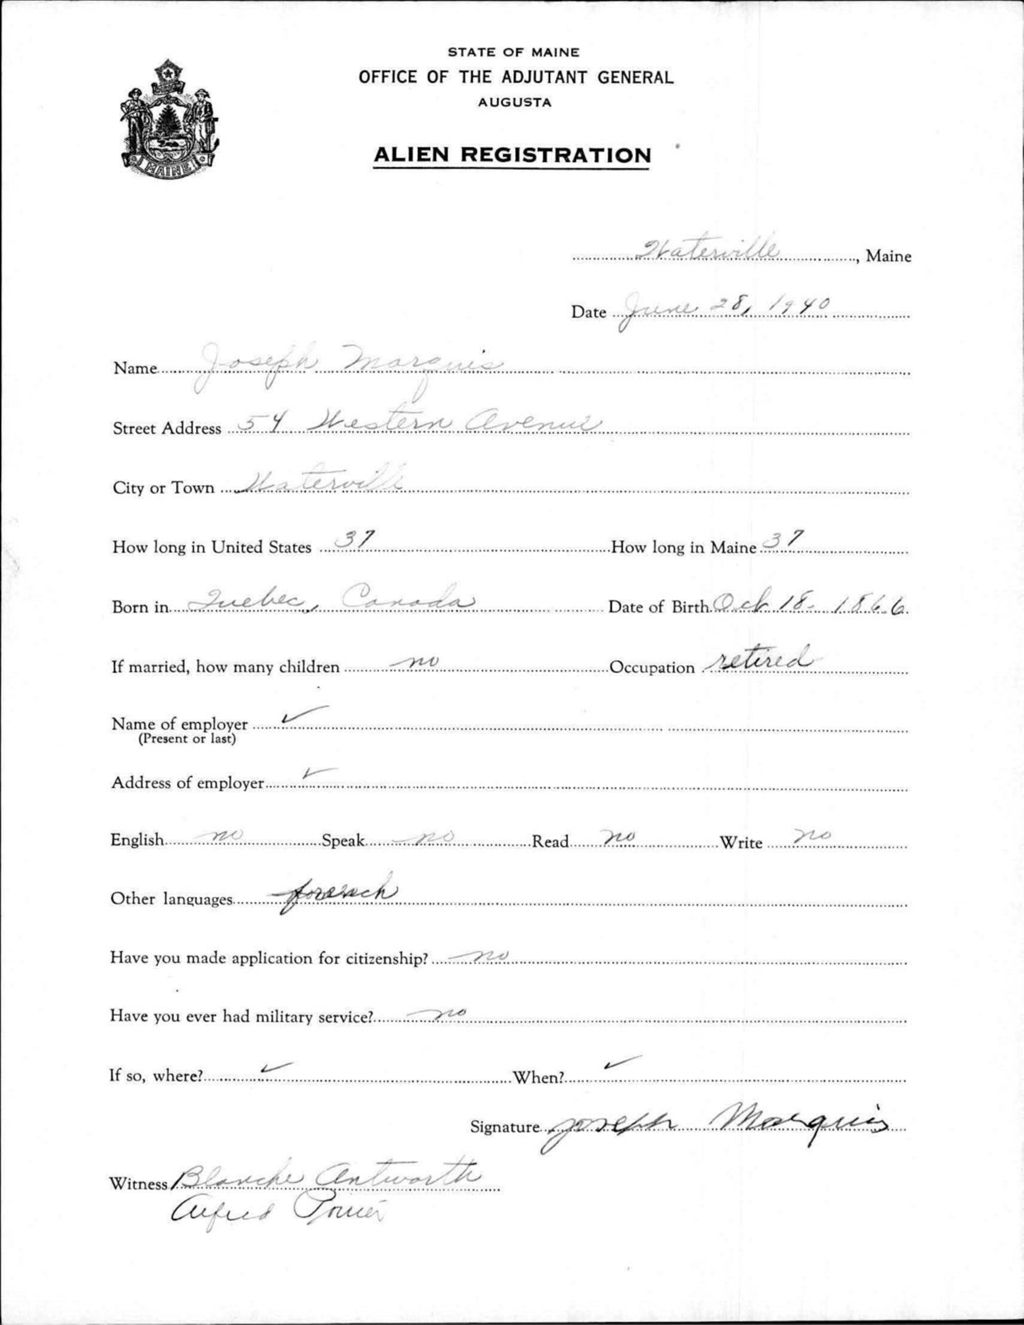 STATE OF MAINE
OFFICE OF THE ADJUTANT GENERAL
AUGUSTA
ALIEN REGISTRATION
MAINE
Waterville, Maine
Date June 28, 1940
Name Joseph Marquis
Street Address 54 Western Avenue
City or Town Waterville
How long in United States 37 How long in Maine 37
Born in Quebec, Canada Date of Birth Oct 18- 1866
If married, how many children no Occupation retired
Name of employer ✓
(Present or last)
Address of employer ✓
English no Speak no Read no Write no
Other languages french
Have you made application for citizenship? no
Have you ever had military service? no
If so, where? ✓ When? ✓
Signature Joseph Marquis
Witness Blanche Antworth
Alfred Poirier